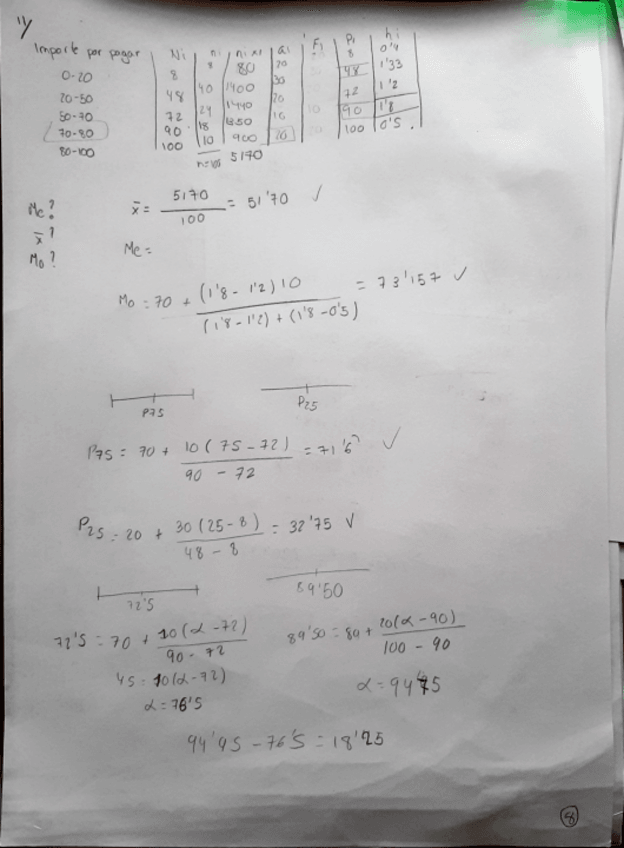 1/
Importe por pagar Ni ni ni xi ai Fi Pi hi
0-20 8 8 80 20 8 0'4
20-50 48 40 1400 30 48 1'33
50-70 72 24 1440 20 72 1'2
70-80 90 18 1350 10 90 1'8
80-100 100 10 900 20 100 0'5
5170
Me?
x̄?
Mo?
x̄ = 5170 / 100 = 51'70 ✓
Me =
Mo = 70 + (1'8 - 1'2) 10 / (1'8 - 1'2) + (1'8 - 0'5) = 73'157 ✓
P75 P25
P75 = 70 + 10 (75 - 72) / 90 - 72 = 71'6 ✓
P25 = 20 + 30 (25 - 8) / 48 - 8 = 32'75 ✓
72'5 89'50
72'5 = 70 + 10(α - 72) / 90 - 72
89'50 = 80 + 20(α - 90) / 100 - 90
45 = 10(α - 72)
α = 76'5
α = 94'75
94'95 - 76'5 = 18'25
8